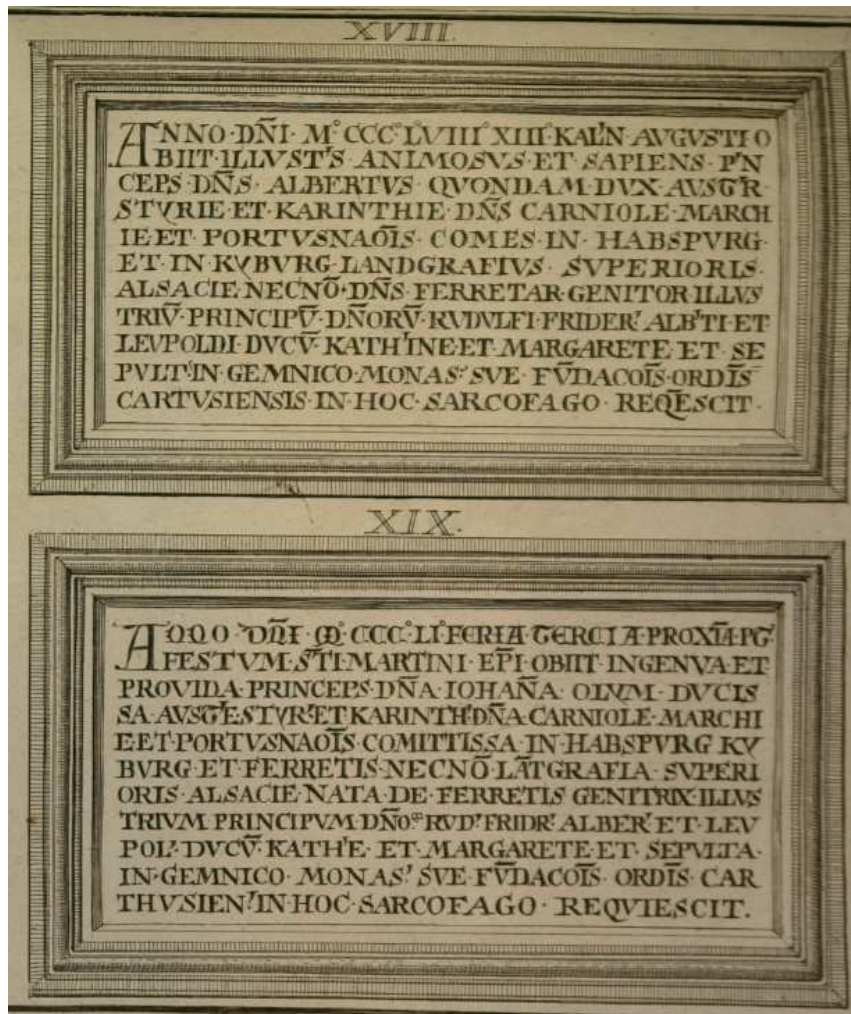 XVIII.
ANNO·DN̄I·M°CCC°LVIII°XIII°KAL'N·AVGVSTI O
BIIT·ILLVST'S ANIMOSVS·ET·SAPIENS·P'N
CEPS·DN̄S·ALBERTVS·QVONDAM·DVX·AVSG'R·
STYRIE·ET·KARINTHIE·DN̄S CARNIOLE·MARCH
IE·ET·PORTVSNAOĪS·COMES·IN·HABSPVRG·
ET·IN·KYBVRG·LANDGRAFIVS·SVPERIORIS·
ALSACIE·NECNŌ·DN̄S·FERRETAR·GENITOR ILLVS
TRIV̄·PRINCIPV̄·DN̄ORV̄·RVDVLFI·FRIDER'ALB'TI·ET
LEVPOLDI·DVCV̄·KATH'INE·ET·MARGARETE·ET·SE
PVLT'IN·GEMNICO·MONAS'·SVE·FV̄DACOĪS·ORDĪS
CARTVSIENSIS·IN·HOC·SARCOFAGO·REQĒSCIT·
XIX.
ANNO·DN̄I·M°CCC°LI·FERIA·TERCIA·PROXĪA·PG'
FESTVM·S'TI·MARTINI·EP̄I·OBIIT·INGENVA·ET
PROVIDA·PRINCEPS·DN̄A·IOHAN̄A·OLYM·DVCIS
SA·AVSG'ESTYR'ET KARINTH'DN̄A·CARNIOLE·MARCHI
E·ET·PORTVSNAOĪS·COMITTISSA·IN·HABSPVRG·KY
BVRG·ET·FERRETIS·NECNŌ·LĀTGRAFIA·SVPERI
ORIS·ALSACIE·NATA·DE·FERRETIS GENITRIX·ILLVS
TRIVM·PRINCIPVM·DN̄O·RVD'FRIDR'ALBER'ET·LEV
POL'·DVCV̄·KATH'E·ET·MARGARETE·ET·SEPVLTA·
IN·GEMNICO·MONAS'·SVE·FV̄DACOĪS·ORDĪS·CAR
THVSIEN'IN·HOC·SARCOFAGO·REQVIESCIT.